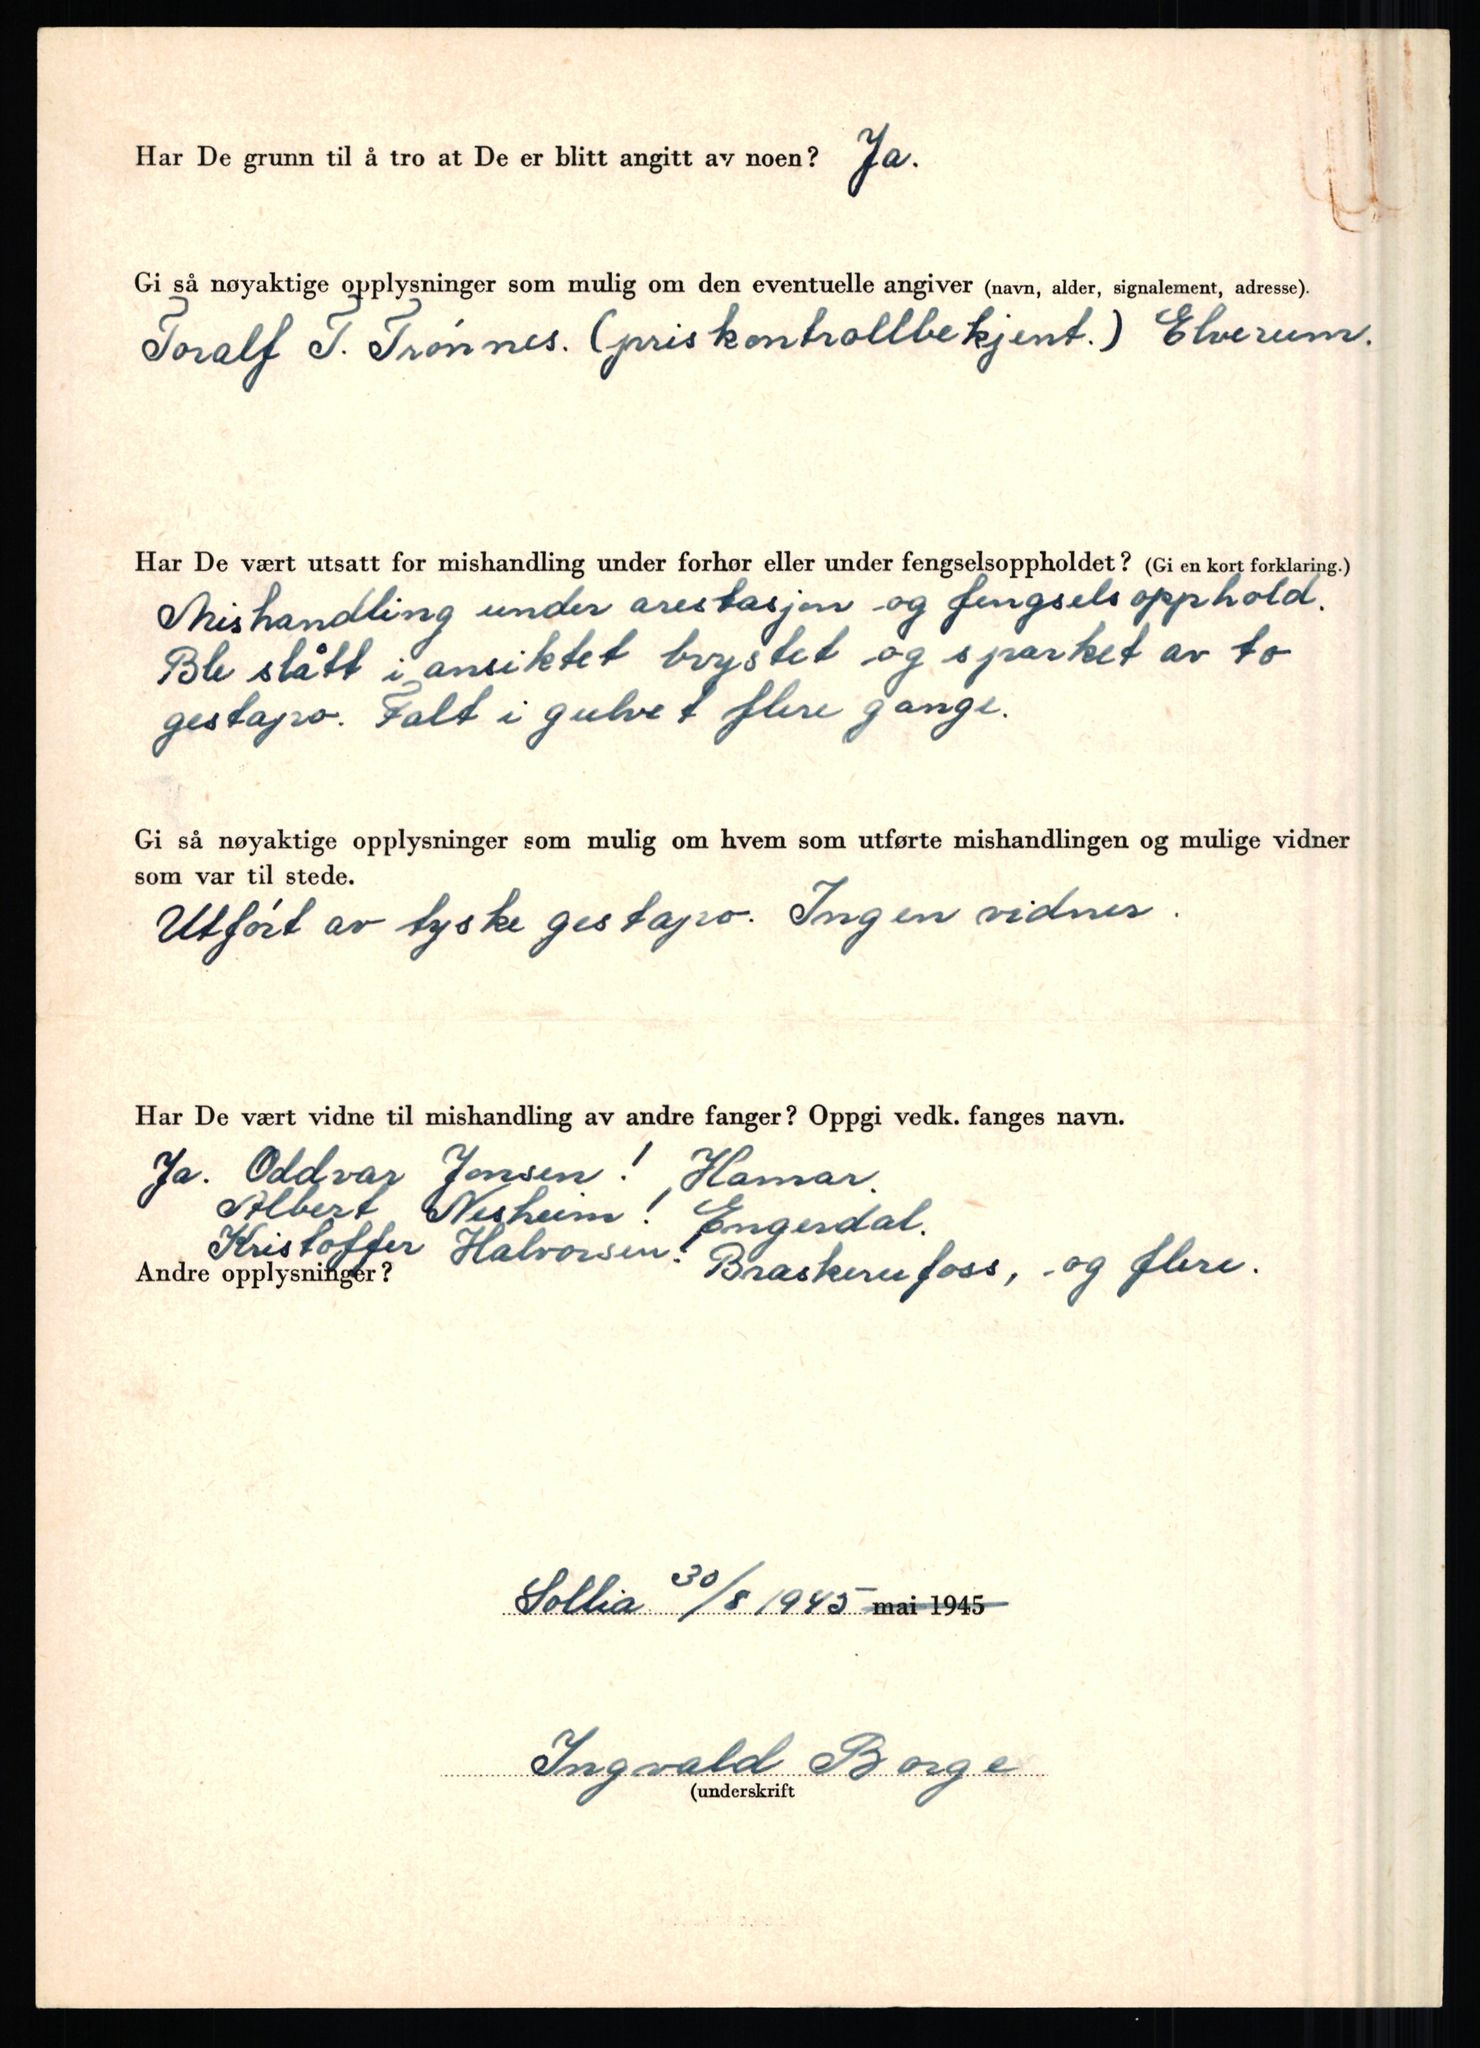 Har De grunn til å tro at De er blitt angitt av noen? Ja.
Gi så nøyaktige opplysninger som mulig om den eventuelle angiver (navn, alder, signalement, adresse).
Toralf T. Trønnes. (priskontrollbekjent.) Elverum.
Har De vært utsatt for mishandling under forhør eller under fengselsoppholdet? (Gi en kort forklaring.)
Mishandling under arestasjon og fengselsopphold.
Ble slått i ansiktet brystet og sparket av to
gestapo. Falt i gulvet flere gange.
Gi så nøyaktige opplysninger som mulig om hvem som utførte mishandlingen og mulige vidner
som var til stede.
Utført av tyske gestapo. Ingen vidner.
Har De vært vidne til mishandling av andre fanger? Oppgi vedk. fanges navn.
Ja. Oddvar Jonsen! Hamar.
Albert Nesheim! Engerdal.
Kristoffer Halvorsen! Braskerufoss, og flere.
Andre opplysninger?
Sollia 30/8 1945 mai 1945
Ingvald Borge
(underskrift